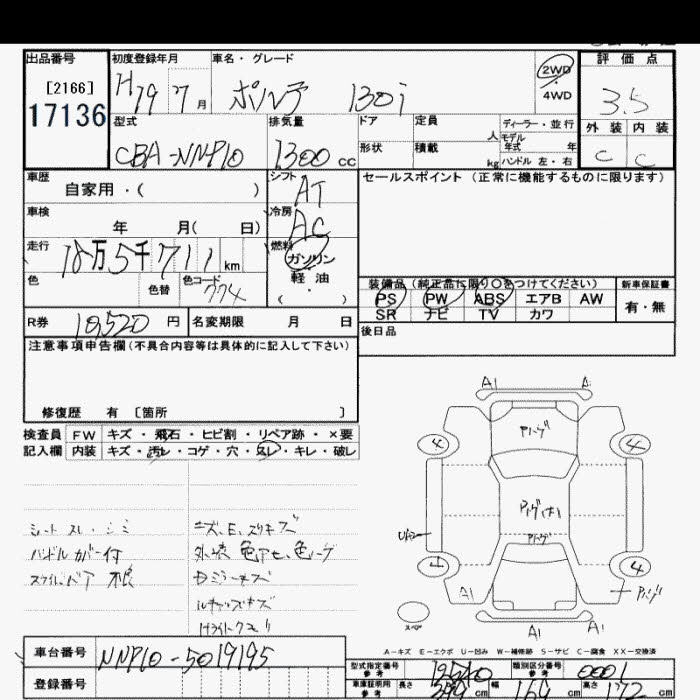 出品番号 初度登録年月 車名・グレード 2WD 評価点
[2166] H19 7月 ポルテ 130i 4WD 3.5
17136
型式 排気量 ドア 定員 人 ディーラー・並行 外装 内装
CBA-NNP10 1300cc 形状 積載 kg モデル年式 年 C C
ハンドル 左・右
車歴 シフト セールスポイント (正常に機能するものに限ります)
自家用・( ) AT
車検 冷房
年 月( 日) AC
走行 燃料
18万5千711km ガソリン
色 色替 色コード 軽油
774 ( ・ )
装備品(純正品に限り○をつけてください) 新車保証書
PS PW ABS エアB AW 有・無
SR ナビ TV カワ
R券 10,520円 名変期限 月 日 後日品
注意事項申告欄(不具合内容等は具体的に記入して下さい)
修復歴 有 [箇所 ]
検査員 FW キズ・飛石・ヒビ割・リペア跡・×要
記入欄 内装 キズ・汚レ・コゲ・穴・スレ・キレ・破レ
A1
アトゲ
4 4
シートスレ・シミ
ハンドルカバー付
小ズ、E、スリキズ
U2
アトゲ
4
A1
スペア
A1 A1
A-キズ E-エクボ U-凹み W-補修跡 S-サビ C-腐食 XX-交換済
車台番号 NNP10-5019195
登録番号
型式指定番号 参考 類別区分番号 参考 0001
車庫証明用 参考 長さ 399cm 幅 169cm 高さ 172cm